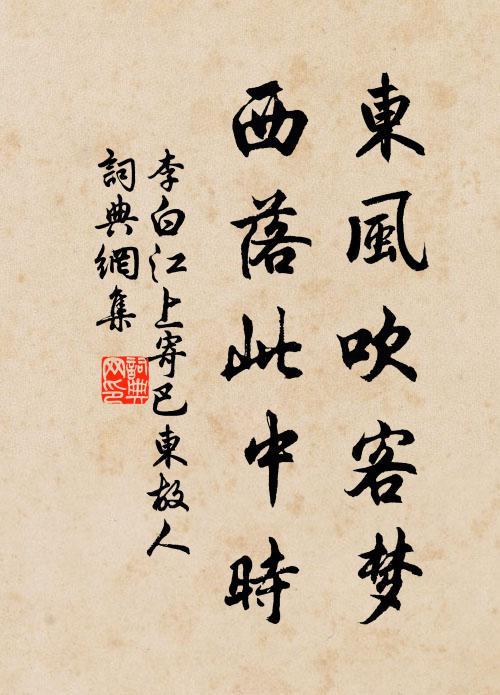 東風吹客梦
西落此中時
李白江上寄巴東故人
詞典網集
詞典
网印